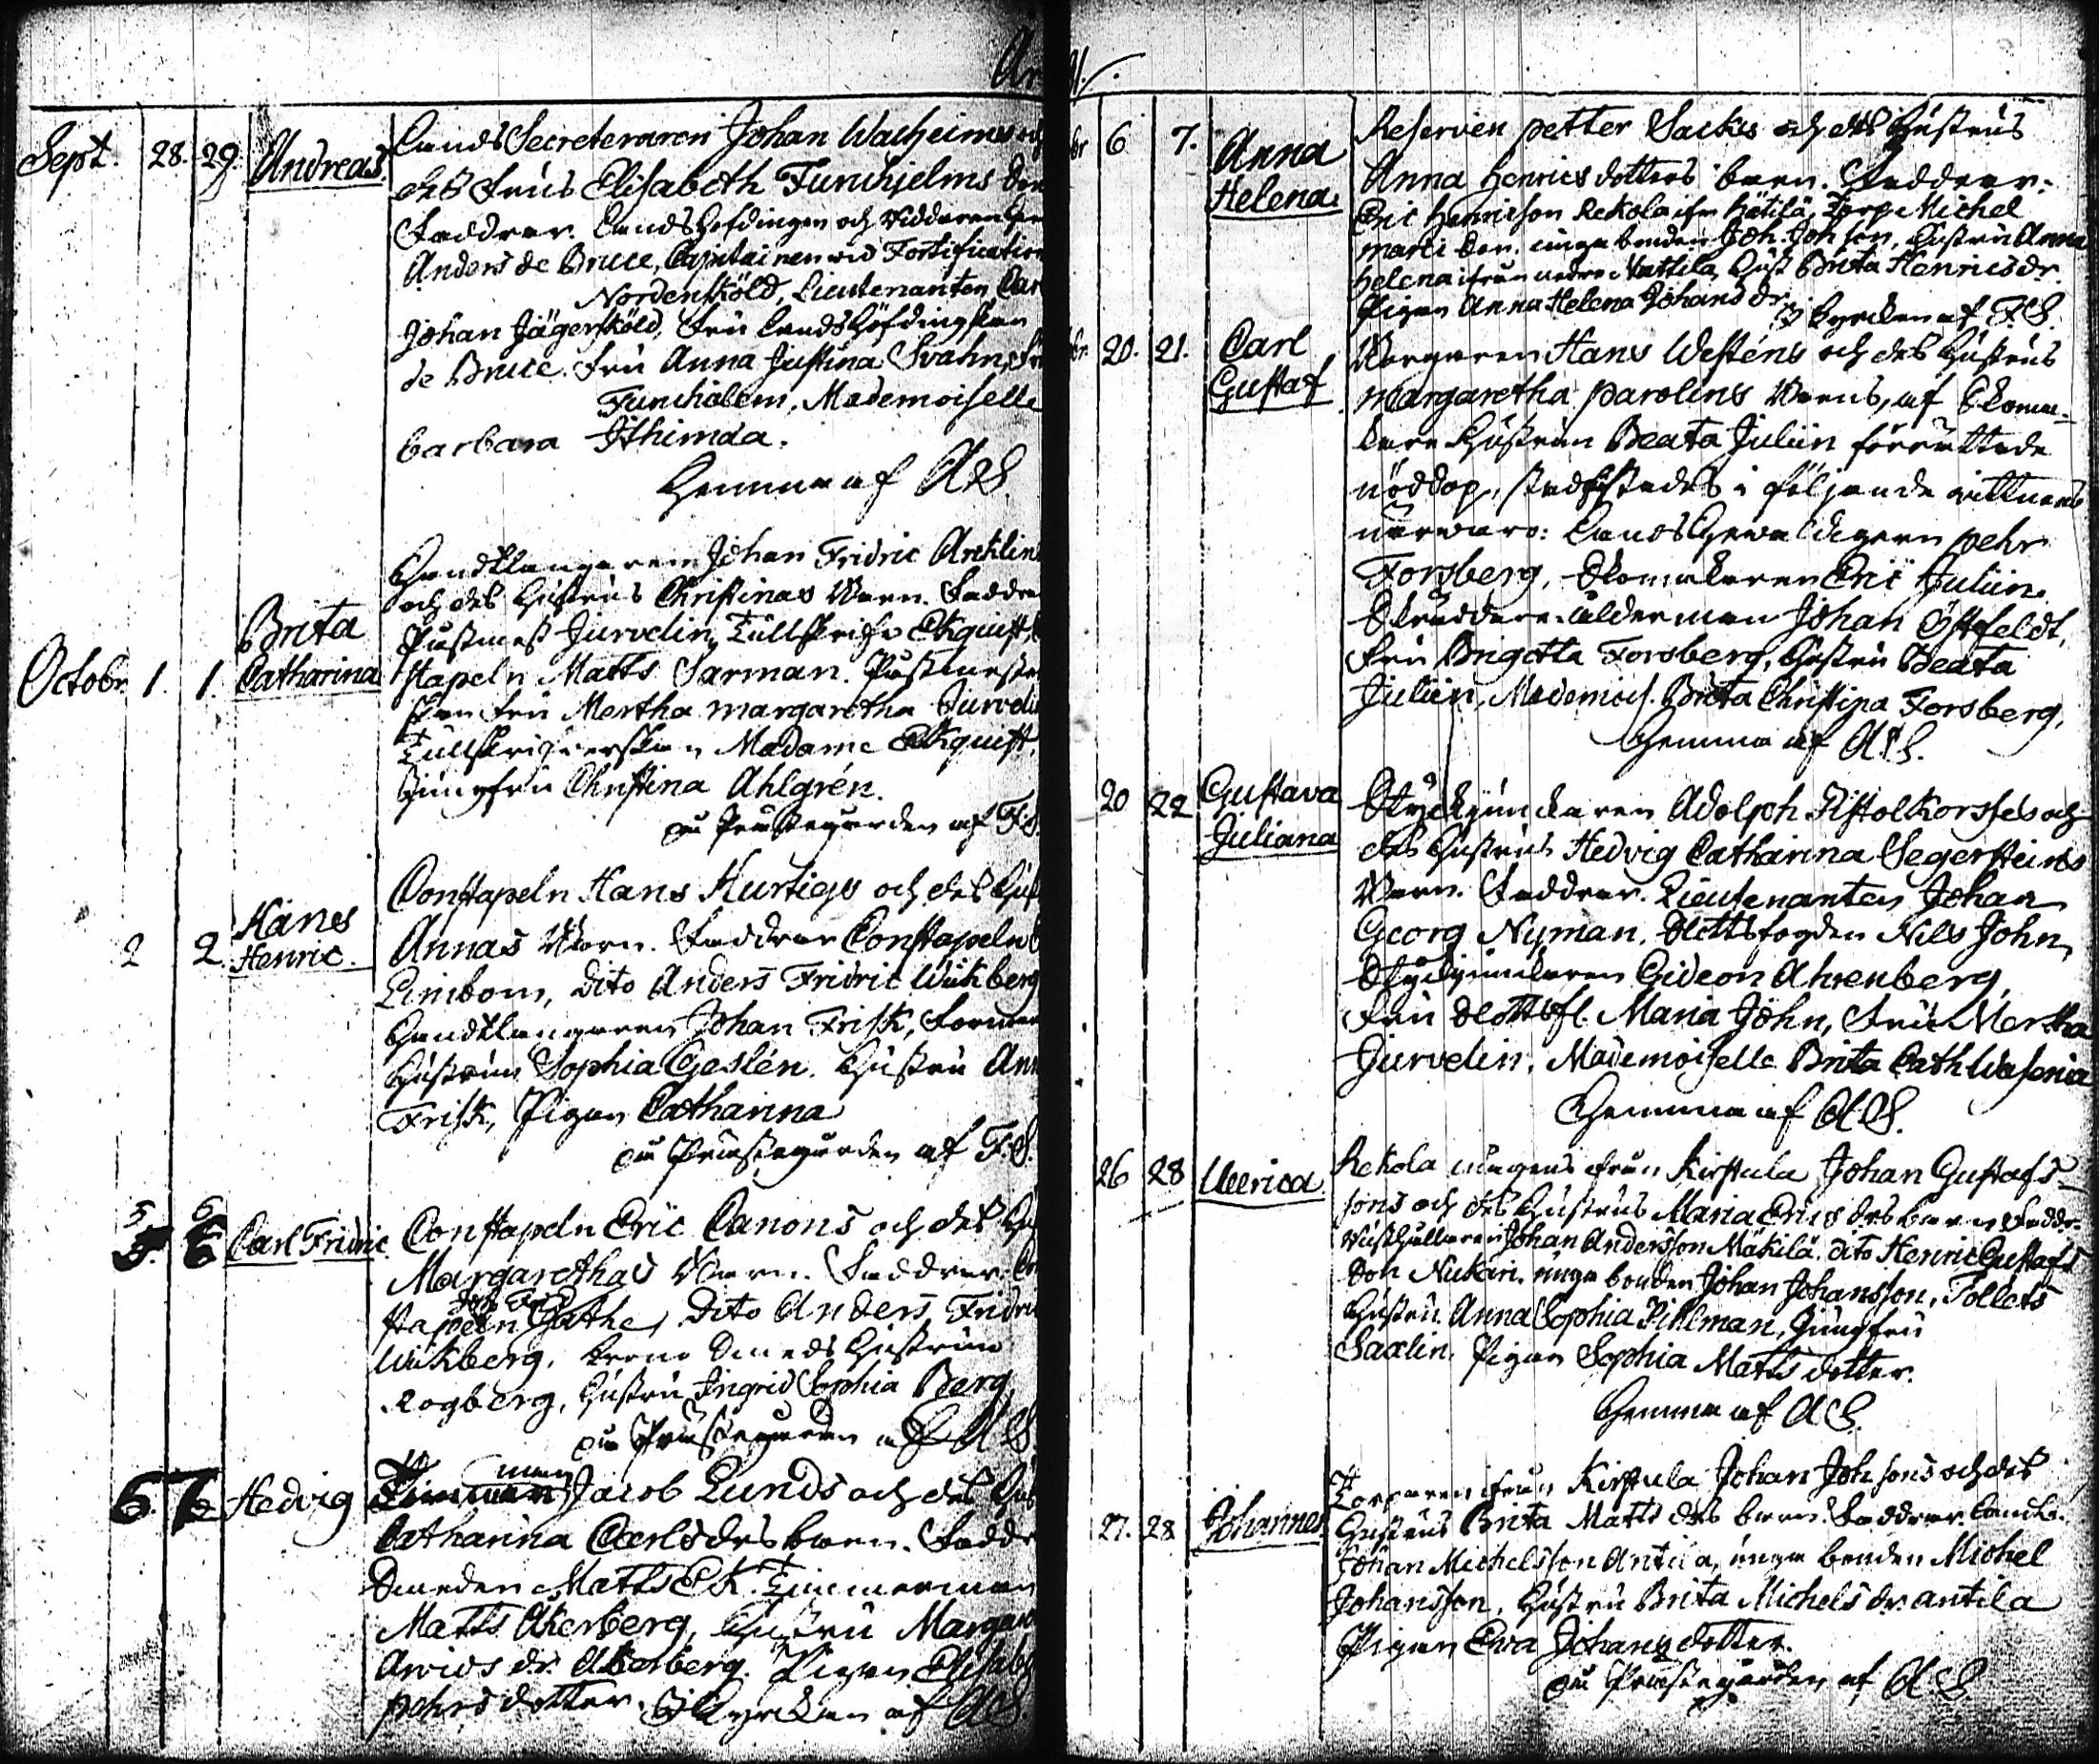 Sept. 28. 29. Andreas. Lands Secreteraren Johan Wacheimes och
des Frus Elisabeth Funchjelms
Faddrar. Landshöfdingen och Riddaren
Anders de Bruce, Capitainen wid Fortification
Nordenskôld, Lieutenanten Car
Johan Jägerskôld, Fru Landshöfdingskan
de Bruce. Fru Anna Justina Svahn,
Mademoiselle
barbara
Hemma af AS.
Handtlangaren Johan Fridric
och des Hustrus Christinas Barn. Faddra
Brita Pustmest Jurvelin, Tullskrifv Ekquist,
Octobr 1. 1. Catharina stapeln Matts Sarman. Pustmesta
skan Fru Mertha margaretha Jurveli
Tullskrifverskan Madame Ekquist,
Jungfru Christina Ahlgrén.
på Prästegården af F.S.
Constapeln Hans Hurtigs och des Hus
2 2. Hans Henric. Annas Barn. Faddrar Constapeln
Limbom, Dito Anders Fridric Wikberg
Handtlangaren Johan Frisk,
Hustrun Sophia Geslén. Hustru Ann
Frisk, Pigan Catharina
på Prästegården af F.S.
5 6
5. 6 Carl Fridric. Constapeln Eric Canons och des Hu
Margarethas Barn. Faddrar. Co
stapeln Gäthe, Dito Anders Fridri
Wikberg, Smeds Hustrun
Rogberg, Hustru Ingrid Sophia Berg
på Prästegården af AS
man
6. 7 Hedvig Jacob Lunds och des Hus
Catharina Carlsdrs barn. Fadd
Smeden Matts Ek. Timmerman
Matts Åkerberg, Hustru Margar
Arvids dr. Åkerberg. Pigan Elisab
pehrs dotter. I Kyrckan af AS
6 7. Anna Helena. Reserven petter Sackes och des Hustrus
Anna Henrics dotters barn. Faddrar:
Eric Henricson Rekola ifr. Hätilä, Torp Michel
unga bonden Joh. Joh son, Hustru Anna
Helena ifrån nedre Vattila, Hust Brita Henricsdr.
Pigan Anna Helena Johansdr. I kyrckan af F.S.
20. 21. Carl Gustaf Borgaren Hans Westéns och des Hustrus
margaretha parolins Barns, af Skoma-
kare Hustrun Beata Juliin förrättade
nöddop, stadfästades i följande vittnens
närvaro: Landsgevaldigern pehr
Forsberg, Skomakaren Eric Juliin.
Skräddare ålderman Johan Östfeldt,
Fru Brigetta Forsberg, Hustru Beata
Juliin, Mademois. Brita Christina Forsberg,
Hemma af AS.
20 22 Gustava Juliana Styckjunckaren Adolph och
des Hustrus Hedvig Catharina Segersteins
Barn. Faddrar. Lieutenanten Johan
Georg Nyman, Slottsfogden Nils John,
Styckjunckaren Gideon Ahrenberg,
Fru Slottsf. Maria John, Fru Mertha
Jurvelin, Mademoiselle Brita Cath Wasenia
Hemma af AS.
26 28 Ulerica Rekola från Kirstula Johan Gustafs-
sons och des Hustrus Maria Erics drs barn Faddr.
Johan Andersson Mäkilä, dito Henric Gustafs
Son Nukari. unga bonden Johan Johansson, Tollets
Hustru Anna Sophia Pihlman, Jungfru
Saxlin, Pigan Sophia Matts dotter.
Hemma af AS.
27. 28 Johannes. Torparen från Kirstula Johan Joh sons och des
Hustrus Brita Matts drs barn. Faddrar.
Johan Michelsson Antila, unga bonden Michel
Johansson, Hustru Brita Michels dr. antila
Pigan Eva Johans dotter.
på Prästegården af AS